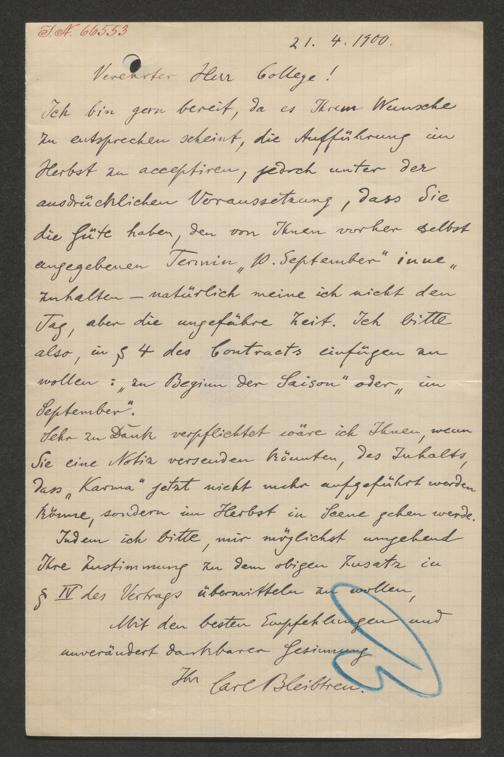 I.N. 66553
21. 4. 1900.
Verehrter Herr College!
Ich bin gern bereit, da es Ihrem Wunsche
zu entsprechen scheint, die Aufführung im
Herbst zu acceptiren, jedoch unter der
ausdrücklichen Voraussetzung, dass Sie
die Güte haben, den von Ihnen vorher selbst
angegebenen Termin „10. September“ inne„
zuhalten – natürlich meine ich nicht den
Tag, aber die ungefähre Zeit. Ich bitte
also, in § 4 des Contracts einfügen zu
wollen: „zu Beginn der Saison“ oder „im
September“.
Sehr zu Dank verpflichtet wäre ich Ihnen, wenn
Sie eine Notiz versenden könnten, des Inhalts,
dass „Karma“ jetzt nicht mehr aufgeführt werden
könne, sondern im Herbst in Scene gehen werde.
Indem ich bitte, mir möglichst umgehend
Ihre Zustimmung zu dem obigen Zusatz in
§ IV des Vertrags übermitteln zu wollen,
Mit den besten Empfehlungen und
unverändert dankbarer Gesinnung
Ihr Carl Bleibtreu.